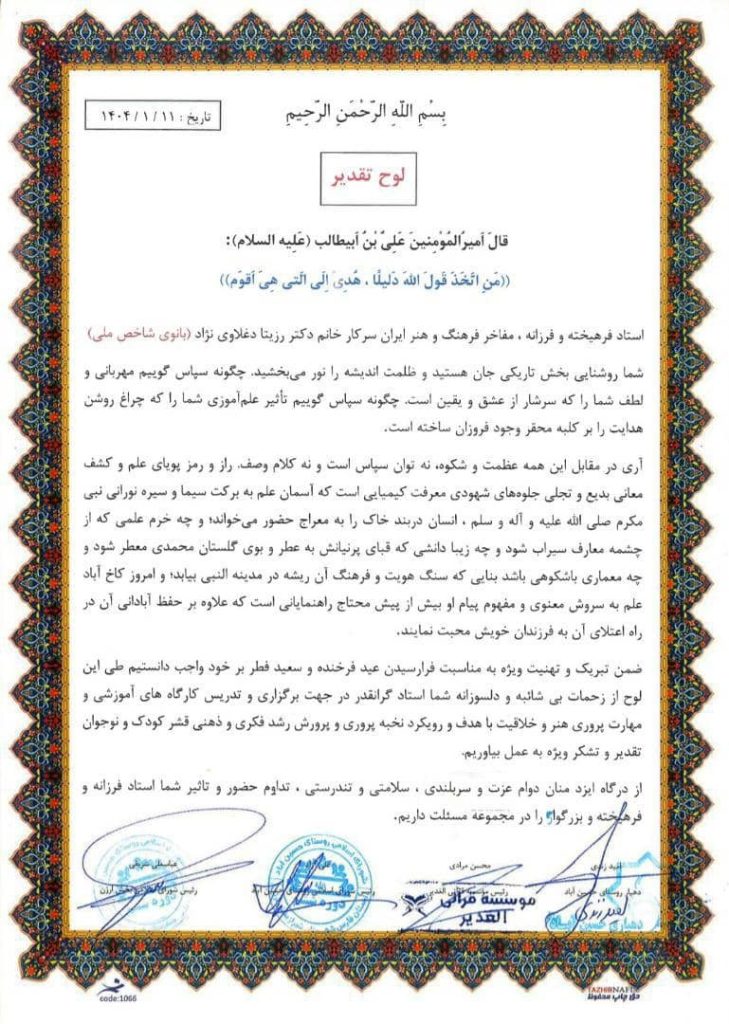 بِسْمِ اللّهِ الرَّحْمَنِ الرَّحِيمِ
تاریخ : ۱۴۰۴/۱/۱۱
لوح تقدیر
قالَ اَمیرُالمُؤمِنینَ عَلِیُّ بْنُ اَبیطالب (عَلِیه السلام):
((مَنِ اتَّخَذَ قَولَ اللهَ دَلیلًا ، هُدِیَ إِلَی الَتی هِیَ اَقوَم))
استاد فرهیخته و فرزانه ، مفاخر فرهنگ و هنر ایران سرکار خانم دکتر رزیتا دغلاوی نژاد (بانوی شاخص ملی)
شما روشنایی بخش تاریکی جان هستید و ظلمت اندیشه را نور می‌بخشید. چگونه سپاس گوییم مهربانی و
لطف شما را که سرشار از عشق و یقین است. چگونه سپاس گوییم تأثیر علم‌آموزی شما را که چراغ روشن
هدایت را بر کلبه محقر وجود فروزان ساخته است.
آری در مقابل این همه عظمت و شکوه، نه توان سپاس است و نه کلام وصف. راز و رمز پویای علم و کشف
معانی بدیع و تجلی جلوه‌های شهودی معرفت کیمیایی است که آسمان علم به برکت سیما و سیره نورانی نبی
مکرم صلی الله علیه و آله و سلم ، انسان دربند خاک را به معراج حضور می‌خواند؛ و چه خرم علمی که از
چشمه معارف سیراب شود و چه زیبا دانشی که قبای پرنیانش به عطر و بوی گلستان محمدی معطر شود و
چه معماری باشکوهی باشد بنایی که سنگ هویت و فرهنگ آن ریشه در مدینه النبی بیابد؛ و امروز کاخ آباد
علم به سروش معنوی و مفهوم پیام او بیش از پیش محتاج راهنمایانی است که علاوه بر حفظ آبادانی آن در
راه اعتلای آن به فرزندان خویش محبت نمایند.
ضمن تبریک و تهنیت ویژه به مناسبت فرارسیدن عید فرخنده و سعید فطر بر خود واجب دانستیم طی این
لوح از زحمات بی شائبه و دلسوزانه شما استاد گرانقدر در جهت برگزاری و تدریس کارگاه های آموزشی و
مهارت پروری هنر و خلاقیت با هدف و رویکرد نخبه پروری و پرورش رشد فکری و ذهنی قشر کودک و نوجوان
تقدیر و تشکر ویژه به عمل بیاوریم.
از درگاه ایزد منان دوام عزت و سربلندی ، سلامتی و تندرستی ، تداوم حضور و تاثیر شما استاد فرزانه و
فرهیخته و بزرگوار را در مجموعه مسئلت داریم.
زندی
محسن مرادی
عباسعلی
دهیار روستای حسین آباد
رئیس موسسه قرآنی الغدیر
رئیس شورای اسلامی روستای حسین آباد
رئیس شورای
شورای اسلامی روستای حسین آباد
دوره
موسسه قرآنی
الغدیر
دهیاری حسین آباد
code:1066
TAZHIBNAFIS
حق چاپ محفوظ